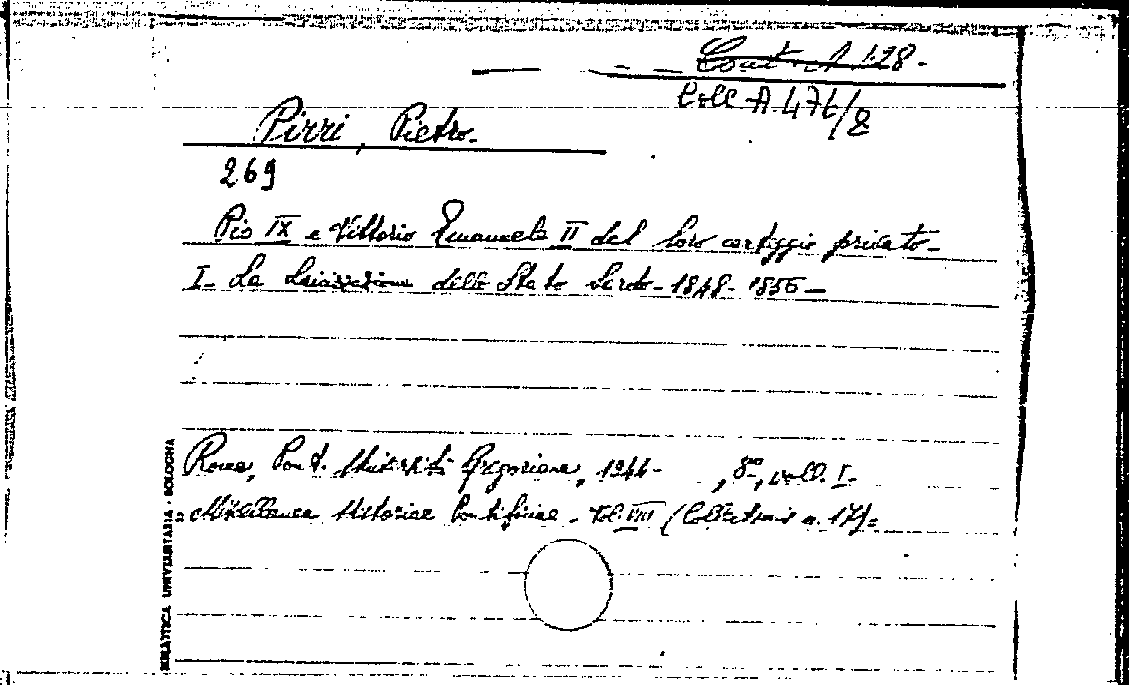 Cont. A 128.
Coll. A. 476/8
Pirri, Pietro.
269
Pio IX e Vittorio Emanuele II dal loro carteggio privato.
I. La laicizzazione dello Stato Sardo - 1848 - 1856 -
Roma, Pont. Università Gregoriana, 1944 - , 8º, voll. I.
Miscellanea Historiae Pontificiae - Vol. VIII (Collectionis n. 17).
BIBLIOTECA UNIVERSITARIA - BOLOGNA